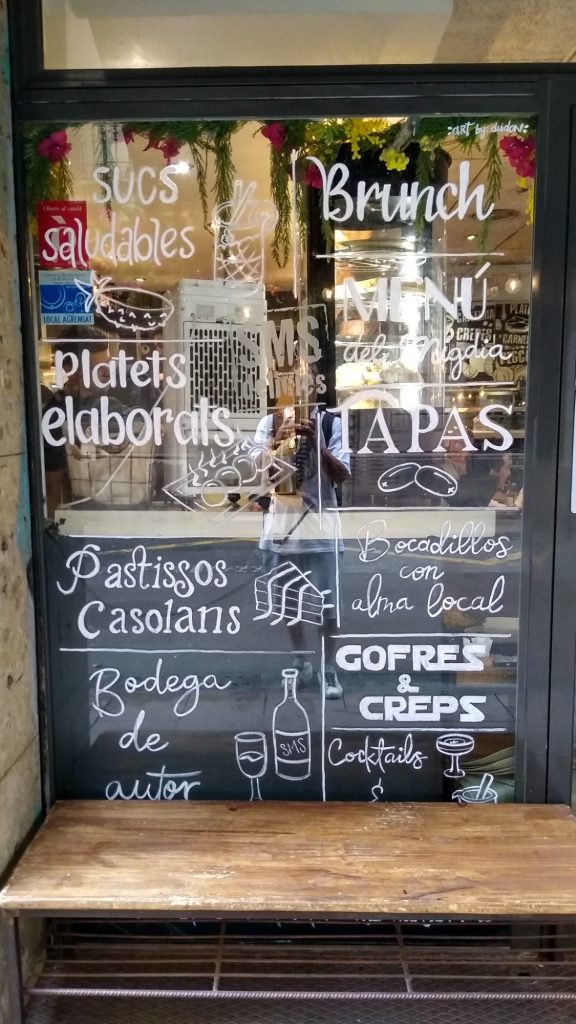 :ART by: duldoN:
SUCS
Saludables
Oferta al català
à
LOCAL AGREMIAT
Platets
elaborats
Pastissos
Casolans
Bodega
de
autor
SMS
SMS
Brunch
MENÚ
del Migdia
TAPAS
Bocadillos
con
alma local
GOFRES
&
CREPS
Cocktails
&